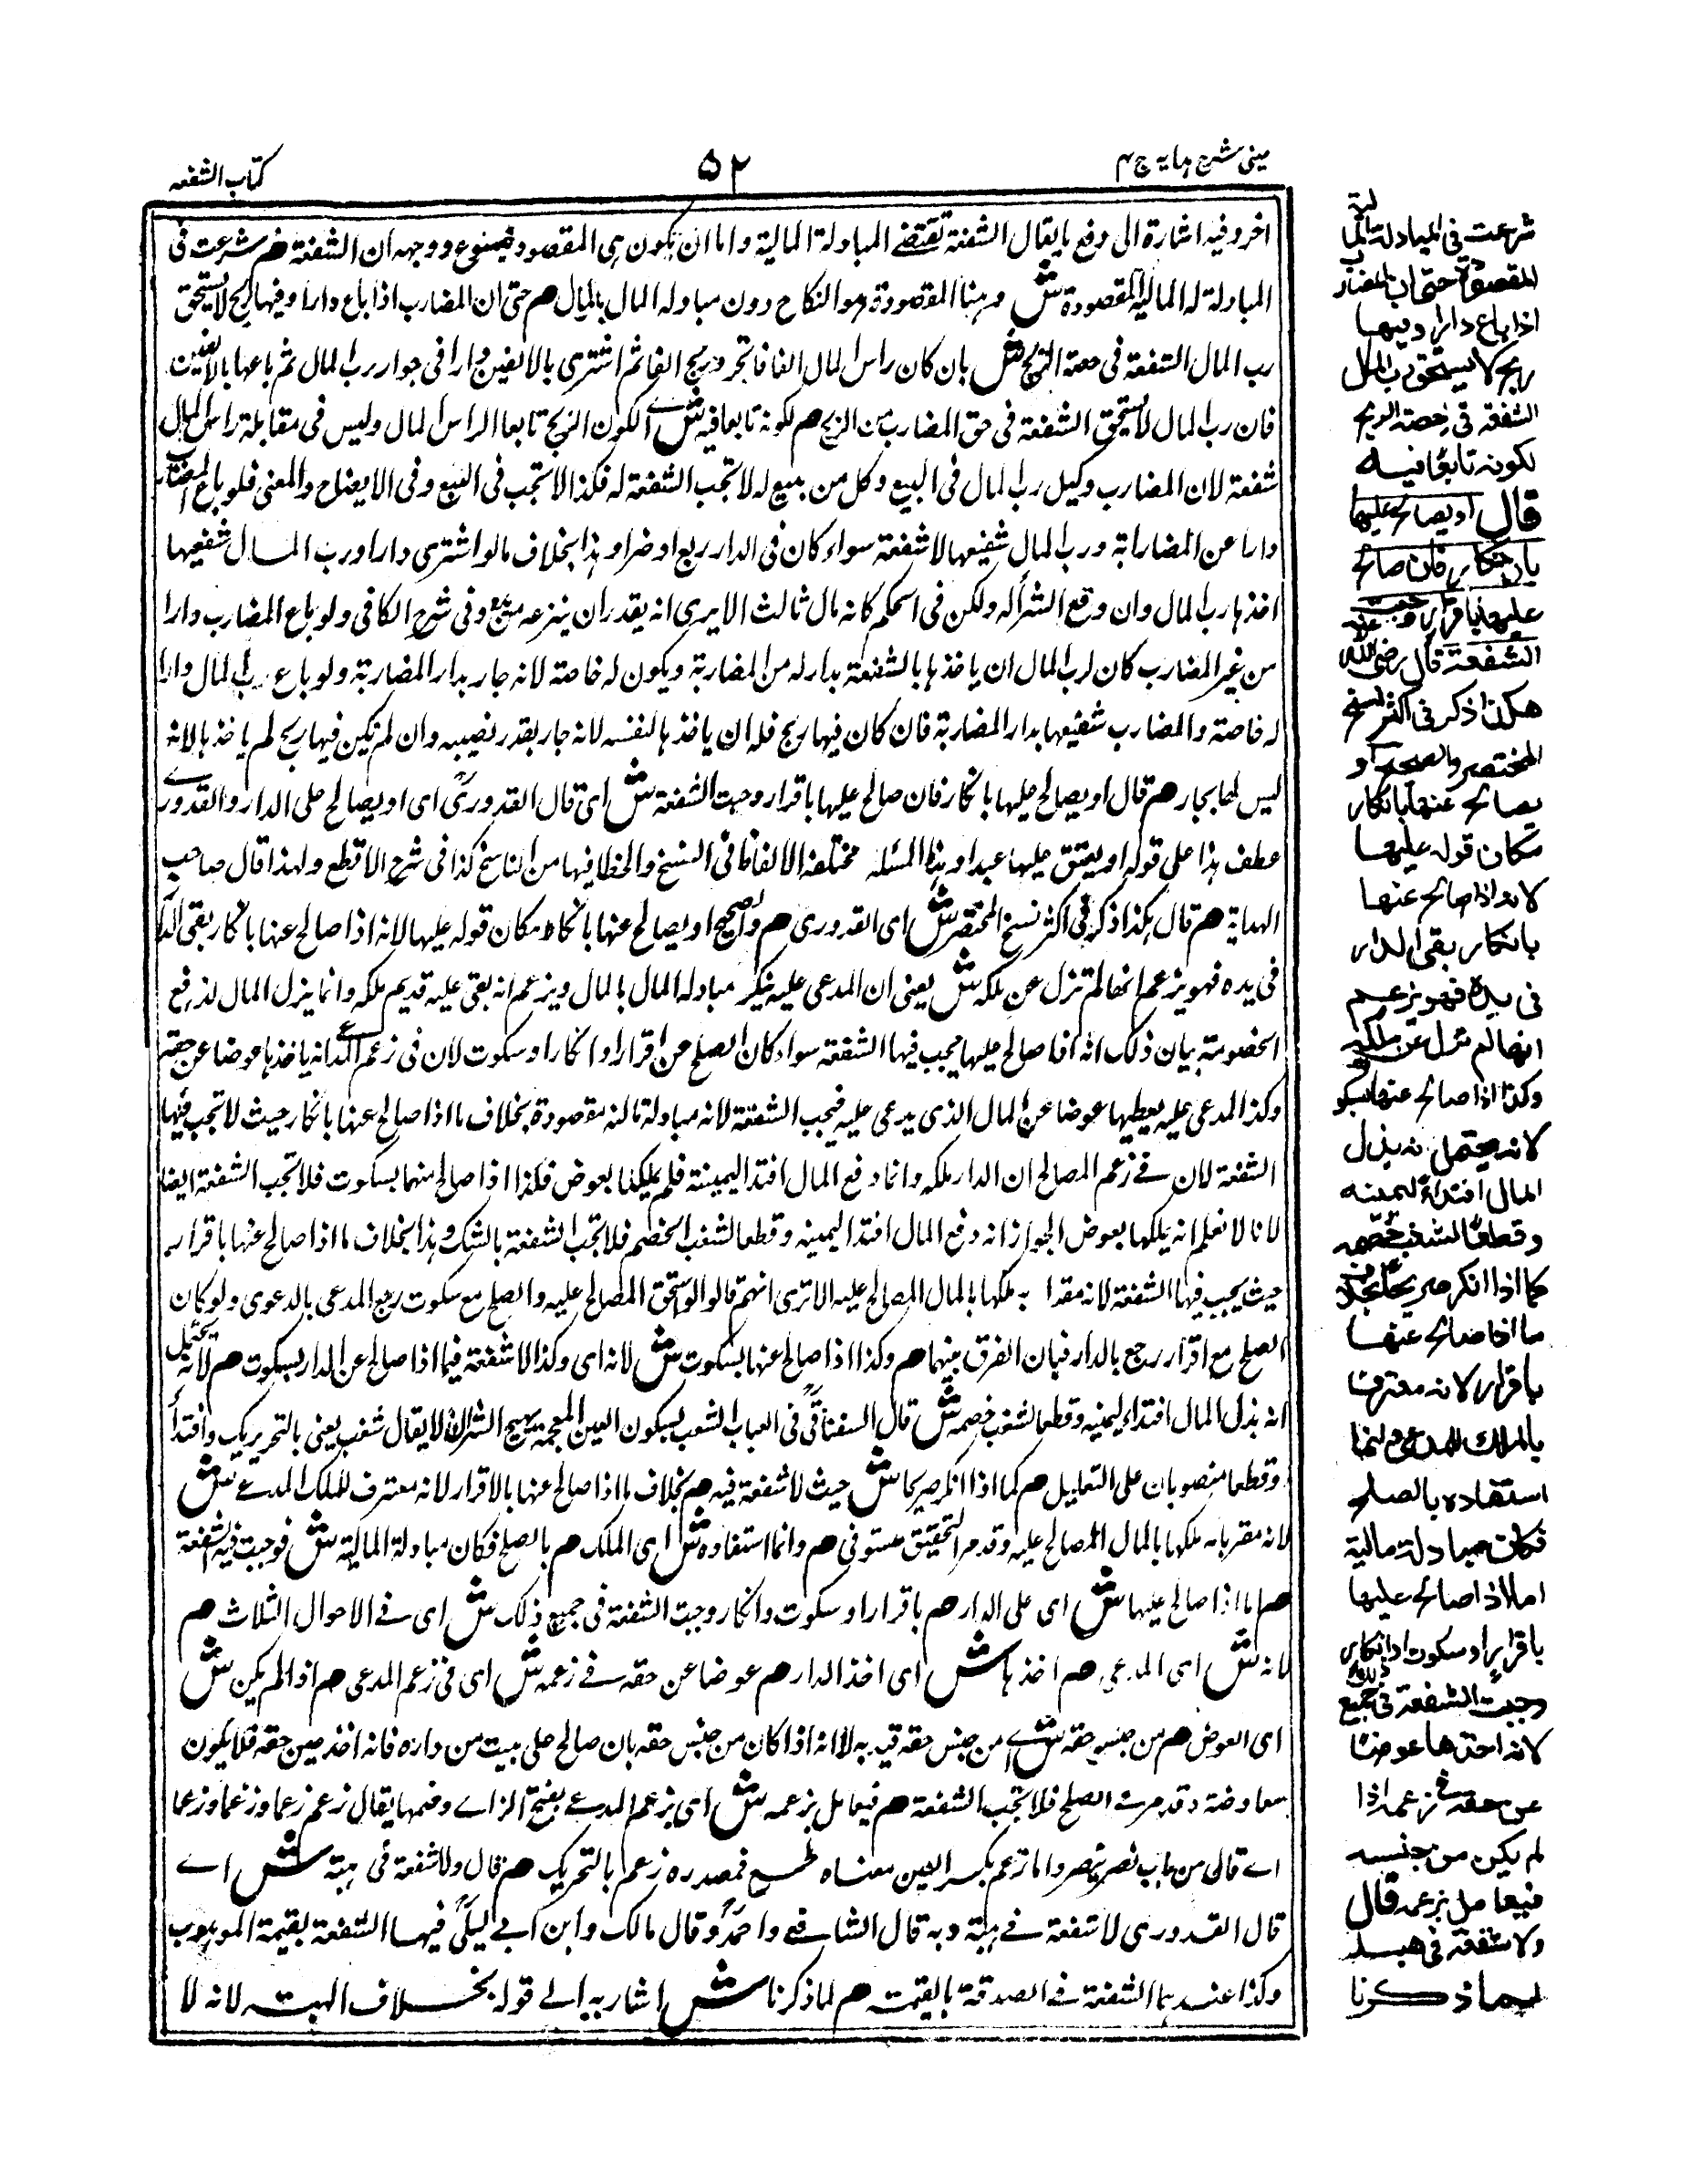 عینی شرح ہدایہ ج ۴
۵۲
کتاب الشفعہ
اخر وفیہ اشارۃ الی دفع ما یقال الشفعۃ تقتضے المبادلۃ المالیۃ واما ان یکون ہی المقصود فممنوع ووجہہ ان الشفعۃ ھم شرعت فی
المبادلۃ المالیۃ المقصودۃ ش وہہنا المقصود ہو النکاح دون مبادلۃ المال بالمال ھم حتی ان المضارب اذا باع دارا وفیہا ربح لا یستحق
رب المال الشفعۃ فی حصۃ الربح ش بان کان راس المال الفا فاتجر وربح الفا ثم اشتری بالالفین دارا فی جوار رب المال ثم باعہا بالالفین
فان رب المال لا یستحق الشفعۃ فی حق المضارب من الربح ھم لکونہ تابعا فیہ ش ای لکون الربح تابعا لراس المال ولیس فی مقابلۃ راس المال
شفعۃ لان المضارب وکیل رب المال فی البیع وکل من بیع لہ لا تجب الشفعۃ لہ فکذا لا تجب فی التبع وفی الایضاح والمغنی فلو باع المضارب
دارا عن المضاربۃ ورب المال شفیعہا لا شفعۃ سواء کان فی الدار ربح او ضرا وہذا بخلاف ما لو اشتری دارا ورب المال شفیعہا
اخذہا رب المال وان وقع الشراء لہ ولکن فی الحکم کانہ مال ثالث الا یری انہ یقدر ان ینزعہ من یدہ وفی شرح الکافی ولو باع المضارب دارا
من غیر المضارب کان لرب المال ان یاخذہا بالشفعۃ بدار لہ من المضاربۃ ویکون لہ خاصۃ لانہ جار بدار المضاربۃ ولو باع رب المال دارا
لہ خاصۃ والمضارب شفیعہا بدار المضاربۃ فان کان فیہا ربح فلہ ان یاخذہا لنفسہ لانہ جار بقدر نصیبہ وان لم یکن فیہا ربح لم یاخذہا لانہ
لیس لہا بجار ھم قال او یصالح علیہا بانکار فان صالح علیہا باقرار وجبت الشفعۃ ش ای قال القدوری ای او یصالح علی الدار والقدوری
عطف ہذا علی قولہ او یعتق علیہا عبدا وہذا المسئلۃ مختلفۃ الالفاظ فی النسخ والخطا فیہا من الناسخ کذا فی شرح الاقطع ولہذا قال صاحب
الہدایۃ ھم قال ہکذا ذکر فی اکثر نسخ المختصر ش ای القدوری ھم والصحیح او یصالح عنہا بانکار مکان قولہ علیہا لانہ اذا صالح عنہا بانکار بقی الدار
فی یدہ فہو یزعم انہا لم تزل عن ملکہ ش یعنی ان المدعی علیہ ینکر مبادلۃ المال بالمال ویزعم انہ بقی علیہ قدیم ملکہ وانما یزل المال لدفع
الخصومۃ بیان ذلک انہ اذا صالح علیہا یجب فیہا الشفعۃ سواء کان الصلح عن اقرار او انکار او سکوت لان فی زعم المدعی انہ یاخذہا عوضا عن حقہ
وکذا المدعی علیہ یعطیہا عوضا عن المال الذی یدعی علیہ فیجب الشفعۃ لانہ مبادلۃ مالیۃ مقصودۃ بخلاف ما اذا صالح عنہا بانکار حیث لا تجب فیہا
الشفعۃ لان فے زعم المصالح ان الدار ملکہ وانما دفع المال افتداء لیمینہ فلم یملکہا بعوض فکذا اذا صالح عنہا بسکوت فلا تجب الشفعۃ ایضا
لانا لا نعلم انہ یملکہا بعوض لجواز انہ دفع المال افتداء لیمینہ وقطعا لشغب الخصم فلا تجب الشفعۃ بالشک وہذا بخلاف ما اذا صالح عنہا باقرار
حیث یجب فیہا الشفعۃ لانہ مقر انہ ملکہا بالمال المصالح علیہ الا تری انہم قالوا لو استحق المصالح علیہ والصلح مع سکوت رجع المدعی بالدعوی ولو کان
الصلح مع اقرار رجع بالدار فبان الفرق بینہما ھم وکذا اذا صالح عنہا بسکوت ش لانہ ای وکذا لا شفعۃ فیما اذا صالح عن الدار بسکوت ھم لانہ یحتمل
انہ بذل المال افتداء لیمینہ وقطعا لشغب خصمہ ش قال السغناقی فی العباب الشغب بسکون الغین المعجمۃ تہییج الشر ولا یقال شغب یعنی بالتحریک وافتداء
وقطعا منصوبان علی التعلیل ھم کما اذا انکر صریحا ش حیث لا شفعۃ فیہ ھم بخلاف ما اذا صالح عنہا بالاقرار لانہ معترف للملک المدعے ش
لانہ مقر بانہ ملکہا بالمال المصالح علیہ وقد مر التحقیق مستوفی ھم وانما استفادہ ش ای الملک ھم بالصلح فکان مبادلۃ المالیۃ ش فوجبت فیہ الشفعۃ
ھم اما اذا صالح علیہا ش ای علی الدار ھم باقرار او سکوت وانکار وجبت الشفعۃ فی جمیع ذلک ش ای فے الاحوال الثلاث ھم
لانہ ش ای المدعی ھم اخذہا ش ای اخذ الدار ھم عوضا عن حقہ فے زعمہ ش ای فی زعم المدعی ھم اذا لم یکن ش
ای العوض ھم من جنس حقہ ش ای من جنس حقہ قید بہ لانہ اذا کان من جنس حقہ بان صالح علی بیت من دارہ فانہ اخذ عین حقہ فلا یکون
معاوضۃ وقد مر فی الصلح فلا تجب الشفعۃ ھم فیعامل بزعمہ ش ای بزعم المدعے بفتح الزاے وضمہا یقال زعم زعما وزعما وزعما
اے قال من باب نصر ینصر واما زعم بکسر العین معناہ طمع فمصدرہ زعم بالتحریک ھم قال ولا شفعۃ فی ہبۃ ش اے
قال القدوری لا شفعۃ فے ہبۃ وبہ قال الشافعے واحمد وقال مالک وابن ابے لیلی فیہا الشفعۃ بقیمۃ الموہوب
وکذا عندہما الشفعۃ فے الصدقۃ بالقیمۃ ھم لما ذکرنا ش اشار بہ الے قولہ بخلاف الہبۃ لانہ لا
شرعت فی المبادلۃ المالیۃ
المقصودۃ حتی ان المضارب
اذا باع دارا وفیہا
ربح لا یستحق رب المال
الشفعۃ فی حصۃ الربح
لکونہ تابعا فیہ
قال او یصالح علیہا
بانکار فان صالح
علیہا باقرار وجبت
الشفعۃ قال رضی اللہ عنہ
ھکذا ذکر فی اکثر نسخ
المختصر والصحیح او
یصالح عنہا بانکار
مکان قولہ علیہا
لانہ اذا صالح عنہا
بانکار بقی الدار
فی یدہ فھو یزعم
انھا لم تزل عن ملکہ
وکذا اذا صالح عنہا بسکوت
لانہ یحتمل انہ بذل
المال افتداء لیمینہ
وقطعا لشغب خصمہ
کما اذا انکر صریحا بخلاف
ما اذا صالح عنہا
باقرار لانہ معترف
بالملک للمدعی وانما
استفادہ بالصلح
فکان مبادلۃ مالیۃ
اما اذا صالح علیہا
باقرار او سکوت او انکار
وجبت الشفعۃ فی جمیع ذلک
لانہ اخذھا عوضا
عن حقہ فی زعمہ اذا
لم یکن من جنسہ
فیعامل بزعمہ قال
ولا شفعۃ فی ھبۃ
لما ذکرنا